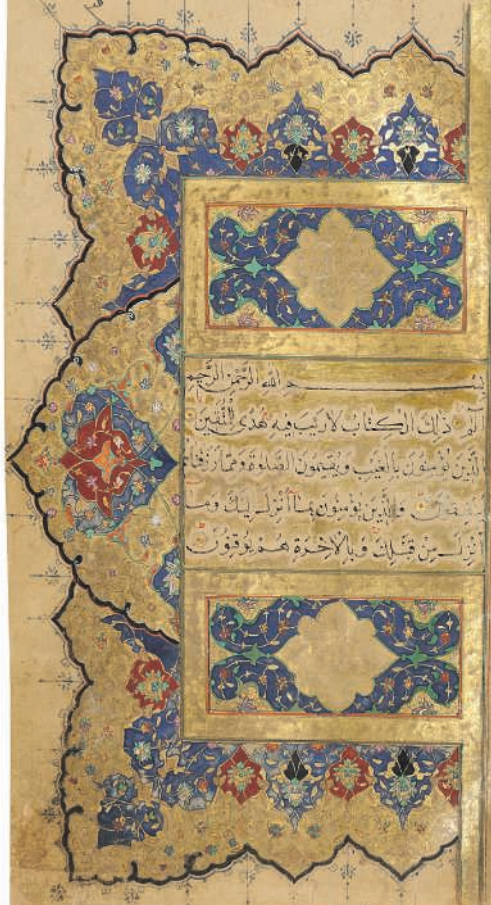 بسم الله الرحمن الرحيم
الم ذلك الكتاب لا ريب فيه هدى للمتقين
الذين يؤمنون بالغيب ويقيمون الصلوة ومما رزقناهم
ينفقون والذين يؤمنون بما أنزل إليك وما
أنزل من قبلك وبالآخرة هم يوقنون